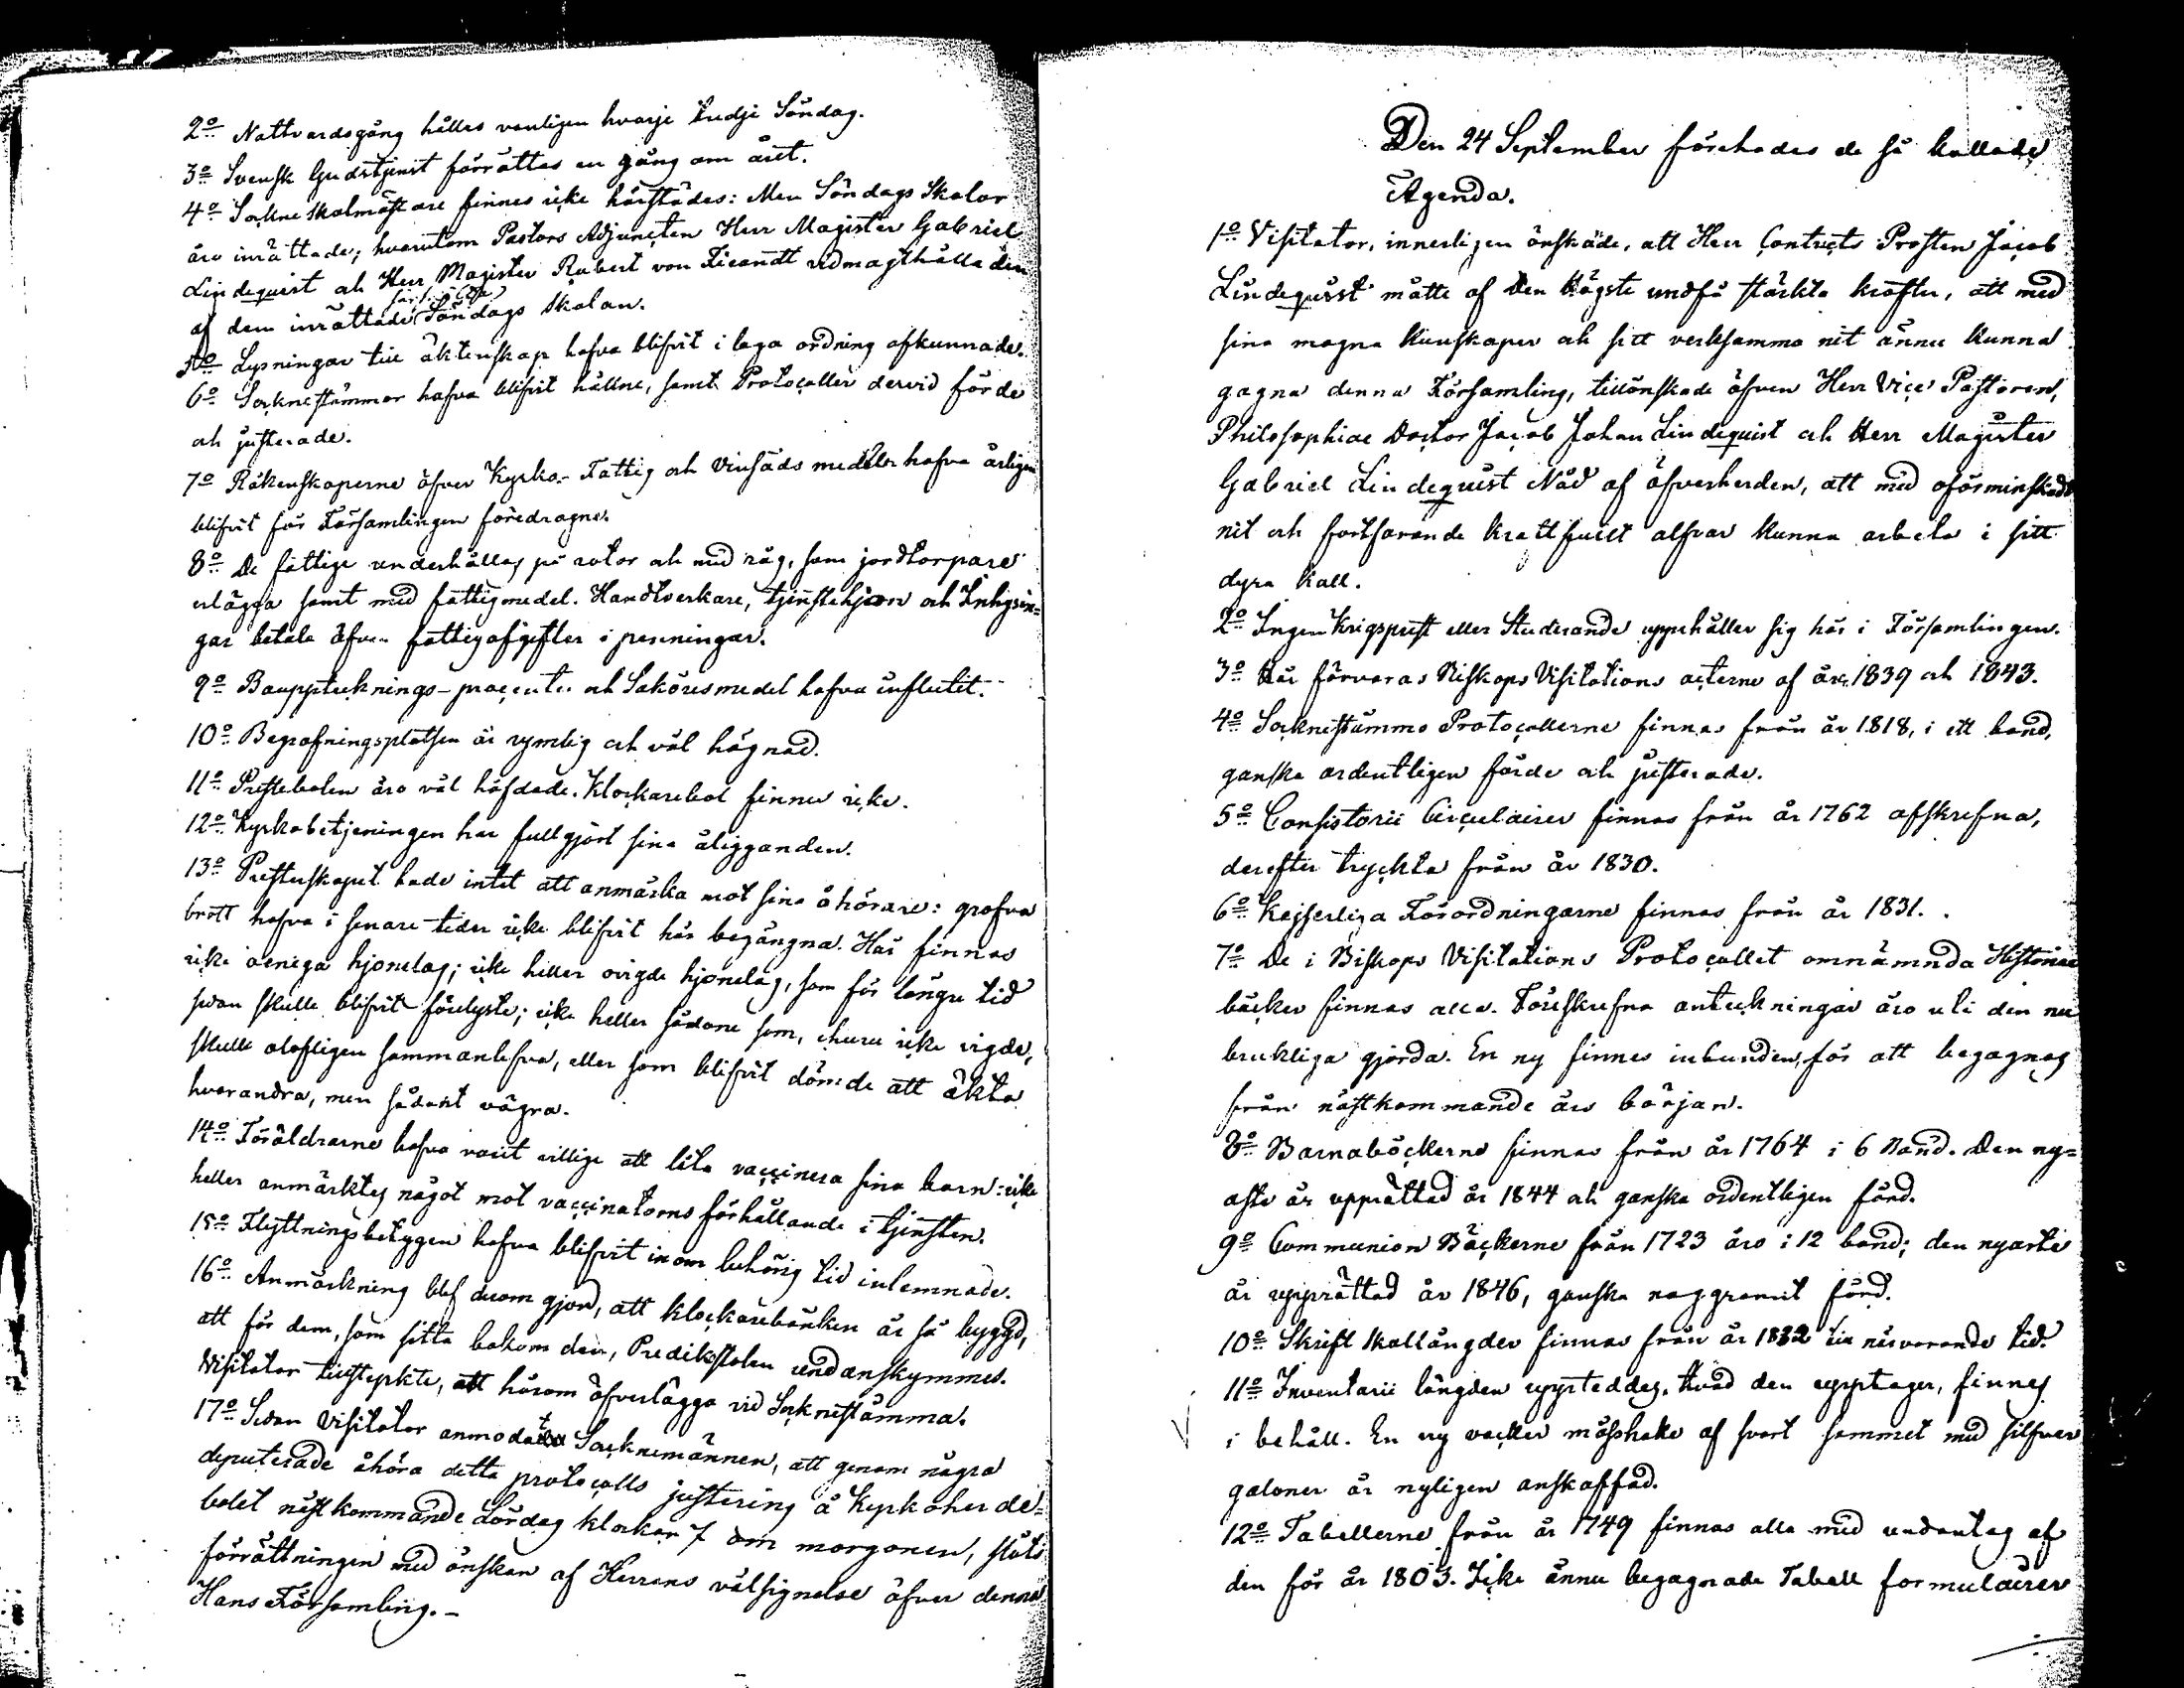 2:o Nattvardsgång hålles vanligen hvarje tredje Söndag.
3:o Svensk Gudstjenst förrättas en gång om året.
4:o Sockneskolmästare finnes icke härstädes: Men Söndags Skolor
äro inrättade; hvarutom Pastors Adjuncten Herr Magister Gabriel
Lindequist och Herr Magister Robert von Fieandt vidmagthålla den
af dem inrättade Söndags skolan.
5:o Lysningar till äktenskap hafva blifvit i laga ordning afkunnade.
6:o Socknestämmor hafva blifvit hållne, samt Protocoller dervid förde
och justerade.
7:o Räkenskaperne öfver Kyrko- Fattig och Vinsäds medel hafva årligen
blifvit för Församlingen föredragne.
8:o De fattige underhållas på rotor och med råg, som jordtorpare
erlägga samt med fattigmedel. Handtverkare, tjenstehjon och Inhysin=
gar betala öfven fattigafgifter i penningar.
9:o Boupptecknings-procenter och Saköresmedel hafva influtit.
10:o Begrafningsplatsen är rymlig och väl hägnad.
11:o Prestebolen äro väl häfdade. Klockarebol finnes icke.
12:o Kyrkobetjeningen har fullgjort sina åligganden.
13:o Presterskapet hade intet att anmärka mot sina åhörare: grofva
brott hafva i senare tider icke blifvit här begångna. Här finnas
icke oeniga hjonelag; icke heller ovigde hjonelag, som för längre tid
sedan skulle blifvit förelyste; icke heller sådane som, ehuru icke vigde,
skulle olofligen sammanlefva, eller som blifvit dömde att äkta
hvarandra, men sådant vägra.
14:o Föräldrarne hafva varit villige att låta vaccinera sina barn: icke
heller anmärktes något mot vaccinatorns förhållande i tjensten.
15:o Flyttningsbetygen hafva blifvit inom behörig tid inlemnade.
16:o Anmärkning blef derom gjord, att klockarebänken är så byggd,
att för dem, som sitta bakom den, Predikstolen undanskymmes.
Visitator tillstyrkte, att härom öfverlägga vid Socknestämma.
17:o Sedan Visitator anmodat Socknemännen, att genom några
deputerade åhöra detta protocolls justering å Kyrkoherde=
bolet nästkommande Lördag klockan 7 om morgonen, slöts
förrättningen med önskan af Herrans välsignelse öfver denna
Hans Församling.-
Den 24 September förehades de så kallade
Agenda.
1:o Visitator, innerligen önskade, att Herr Contracts Prosten Jacob
Lindequist måtte af Den Högste undfå stärkta krafter, att med
sina mogna kunskaper och sitt verksamma nit ännu kunna
gagna denna Församling, tillönskade öfven Herr Vice Pastoren,
Philosophiae Doctor Jacob Johan Lindequist och Herr Magister
Gabriel Lindequist Nåd af öfverherden, att med oförminskadt
nit och fortfarande kraftfullt alfvar kunna arbeta i sitt
dyra kall.
2:o Ingen Krigsprest eller Studerande uppehåller sig här i Församlingen.
3:o Här förvaras Biskops Visitations acterne af åren 1839 och 1843.
4:o Socknestämmo Protocollerne finnas från år 1818, i ett band,
ganska ordentligen förde och justerade.
5:o Consistorii Circulairer finnas från år 1762 afskrefna,
derefter tryckta från år 1830.
6:o Kejserliga Förordningarne finnas från år 1831.
7:o De i Biskops Visitations Protocollet omnämnda Historiae
böcker finnas alla. Föreskrefna anteckningar äro uti den nu
brukliga gjorda. En ny finnes inbunden, för att begagnas
från nästkommande års början.
8:o Barnaböckerne finnas från år 1764 i 6 Band. Den ny=
aste är upprättad år 1844 och ganska ordentligen förd.
9:o Communion Böckerne från 1723 äro i 12 band; den nyaste
är upprättad år 1846, ganska noggrannt förd.
10:o Skriftskollängder finnas från år 1832 till närvarande tid.
11:o Inventarii längden uppteddes. Hvad den upptager, finnes
i behåll. En ny vacker mässhake af svart sammet med silfver
galoner är nyligen anskaffad.
12:o Tabellerne från år 1749 finnas alla med undantag af
den för år 1803. Icke ännu begagnade Tabell formulairer